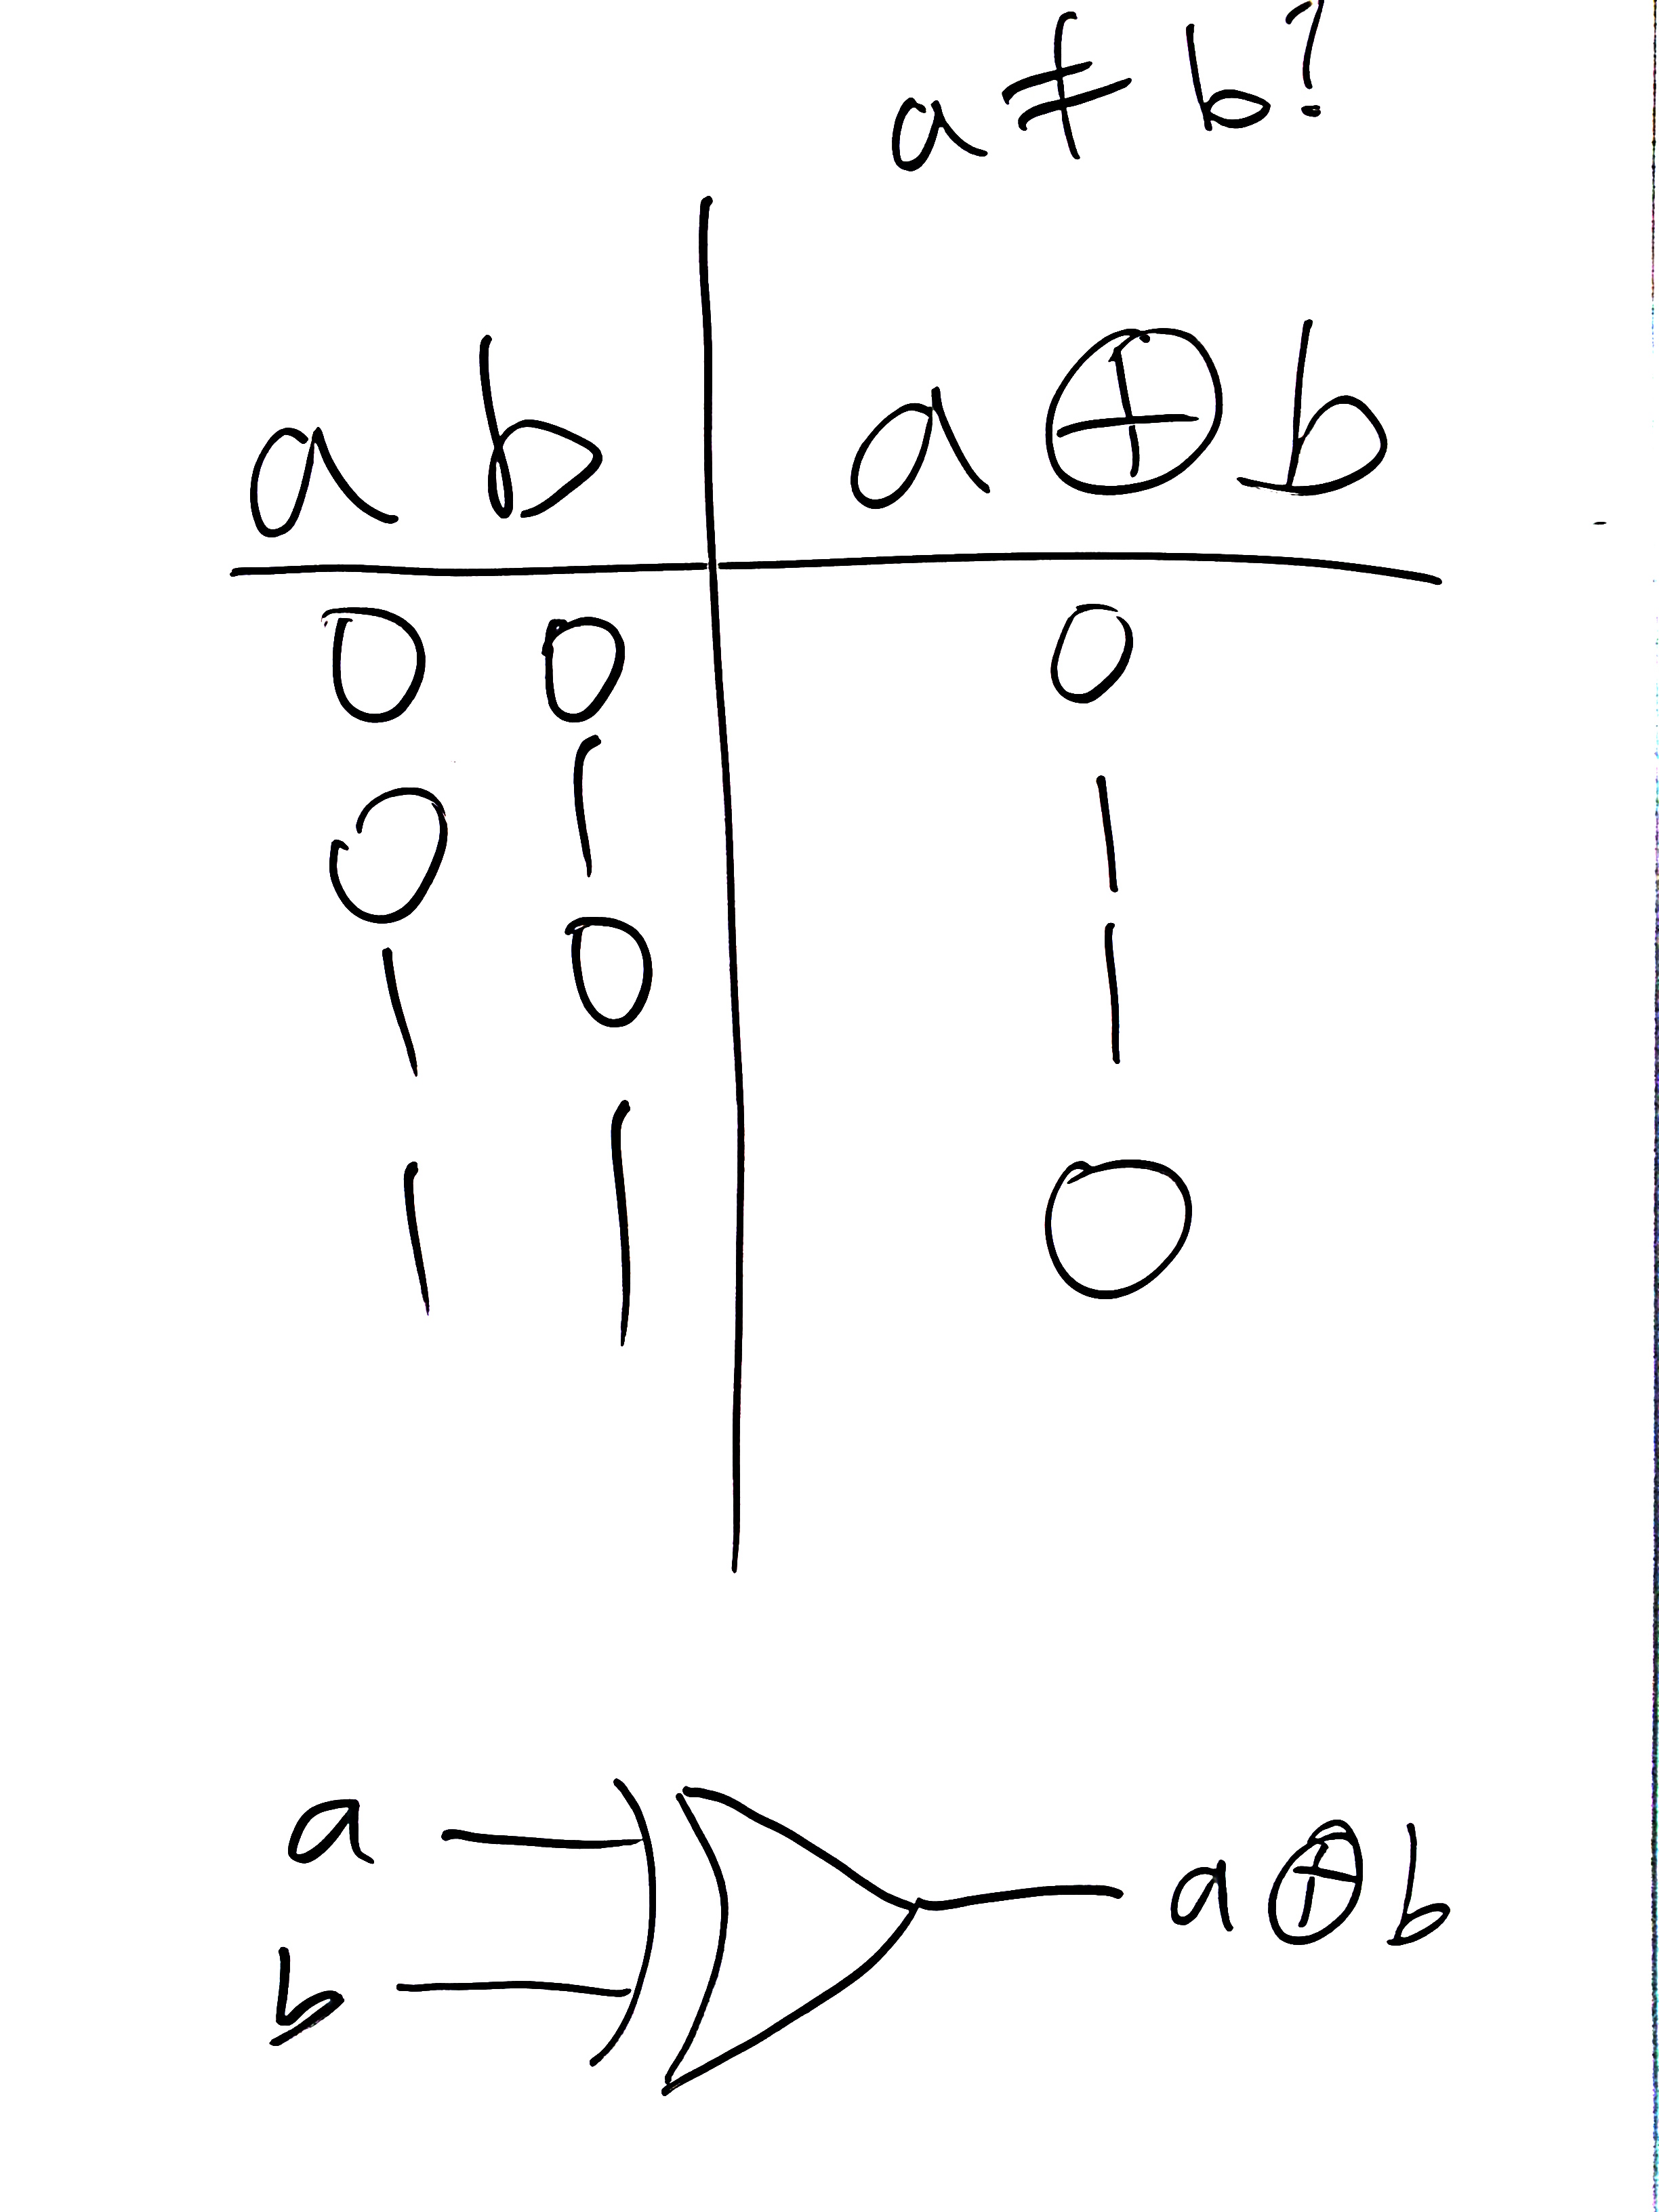 a ≠ b?
a b a ⊕ b
0 0 0
0 1 1
1 0 1
1 1 0
a
a ⊕ b
b